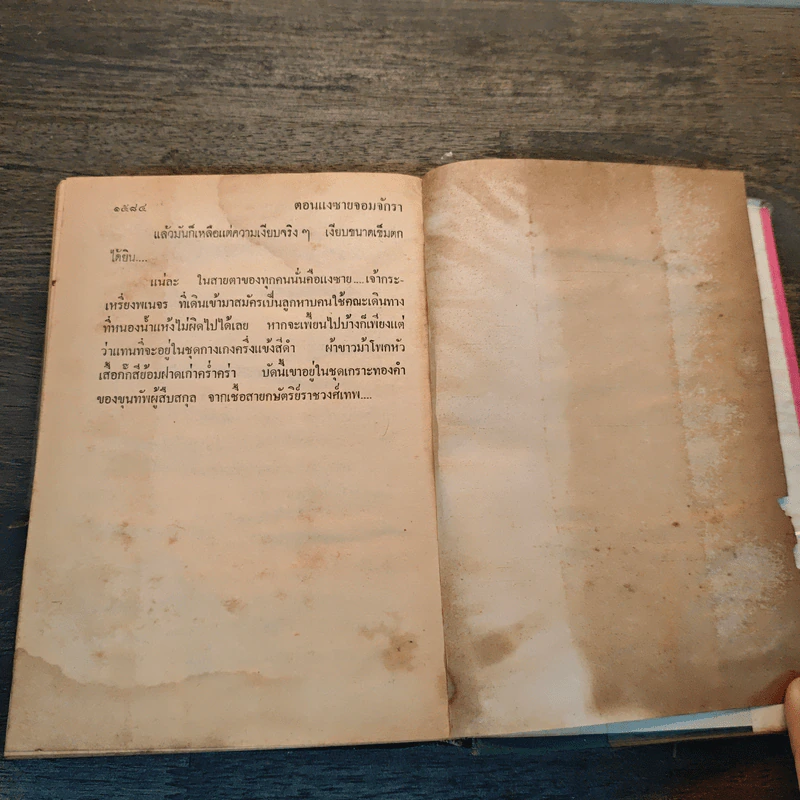 ๑๕๘๔ ตอนแงซายจอมจักรา
แล้วมันก็เหลือแต่ความเงียบจริง ๆ เงียบขนาดเข็มตก
ได้ยิน....
แน่ละ ในสายตาของทุกคนนั่นคือแงซาย....เจ้ากระ-
เหรี่ยงพเนจร ที่เดินเข้ามาสมัครเป็นลูกหาบคนใช้คณะเดินทาง
ที่หนองน้ำแห้งไม่ผิดไปได้เลย หากจะเพี้ยนไปบ้างก็เพียงแต่
ว่าแทนที่จะอยู่ในชุดกางเกงครึ่งแข้งสีดำ ผ้าขาวม้าโพกหัว
เสื้อกั๊กสีย้อมฝาดเก่าคร่ำคร่า บัดนี้เขาอยู่ในชุดเกราะทองคำ
ของขุนทัพผู้สืบสกุล จากเชื้อสายกษัตริย์ราชวงศ์เทพ....